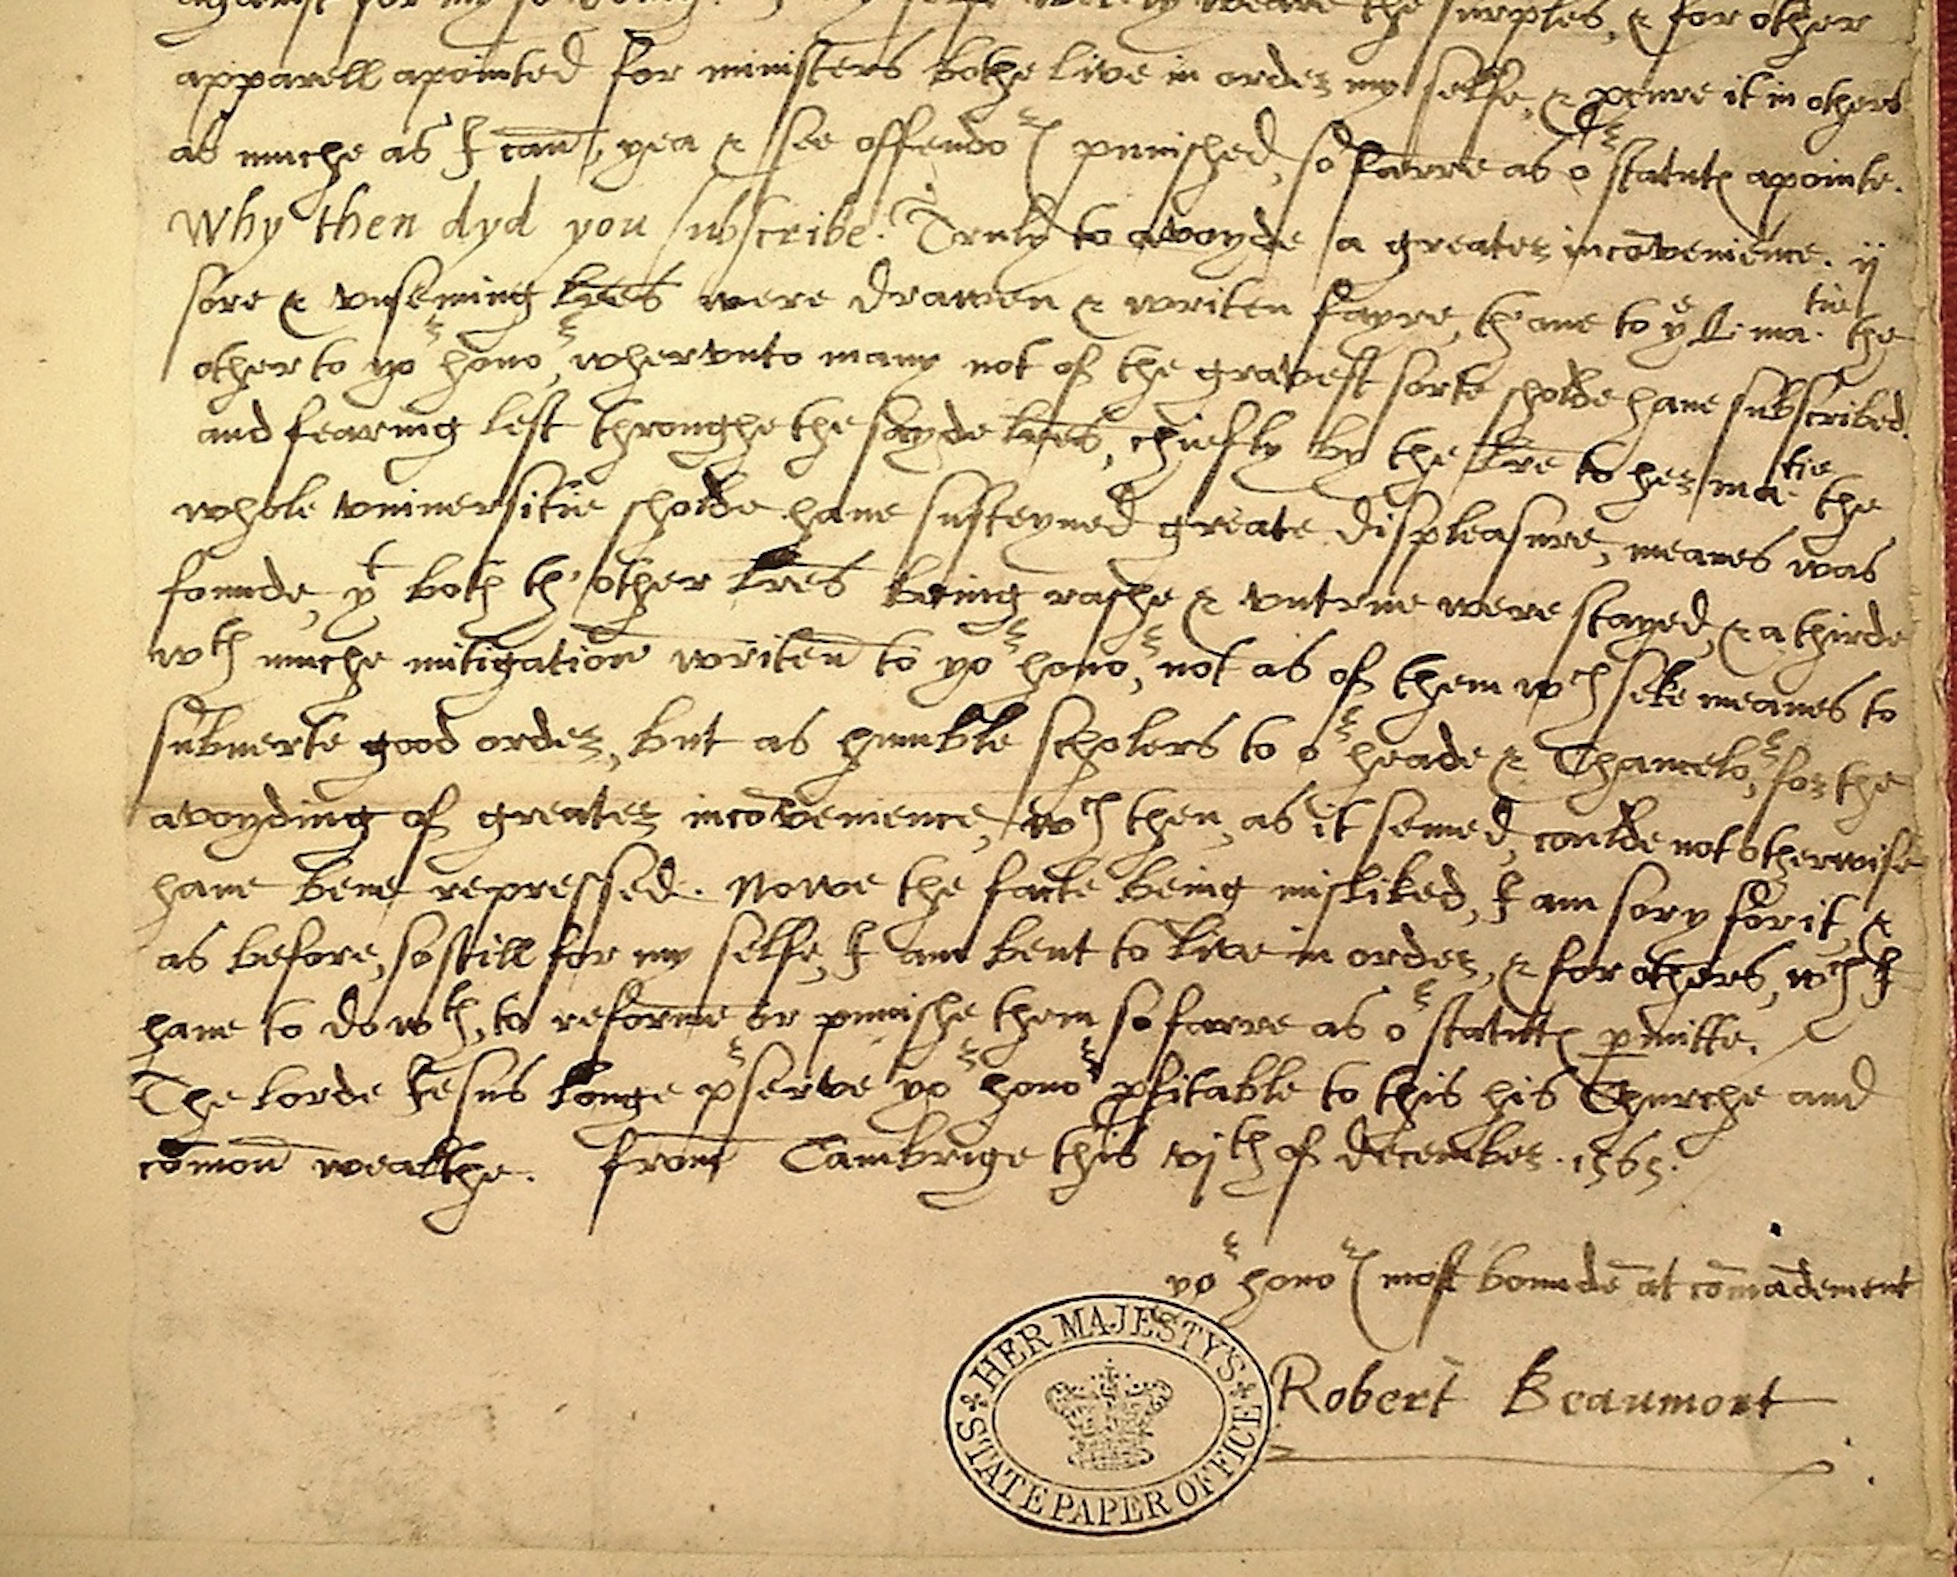 the surples, & for other
apparell apointed for ministers bothe live in order my selfe, & procure it in others
as muche as I can, yea & see offendors punished, so farre as or statutes apointe.
Why then dyd you subscribe. Truly to avoyde a greater incōvenience. ij
sore & unseming lres were drawen & writen fayre, th'one to ye Q. matie. the
other to yor honor, wherunto many not of the gravest sorte sholde have subscribed.
and fearing lest throughe the sayde lres, chiefly by the lre to her matie. the
whole universitie sholde have susteyned greate displeasure, meanes was
founde, yt both th'other lres being rashe & untrue were stayed, & a thirde
wth muche mitigation writen to yor honor, not as of them wch seke meanes to
subverte good order, but as humble scholers to or heade & Chancelor, for the
avoyding of greater incōvenience, wch then, as it semed, coulde not otherwise
have bene repressed. Nowe the facte being misliked, I am sory for it, &
as before, so still for my selfe, I am bent to live in order, & for others, wch I
have to do wth, to reforme or punishe them so farre as or statutes pmitte.
The Lorde Jesus longe pserve yor honor pfitable to this his Churche and
cōmon wealthe. from Cambrige this vjth of december. 1565.
yor honors most bounde at cōmādement
Robert Beaumont
HER MAJESTY'S STATE PAPER OFFICE